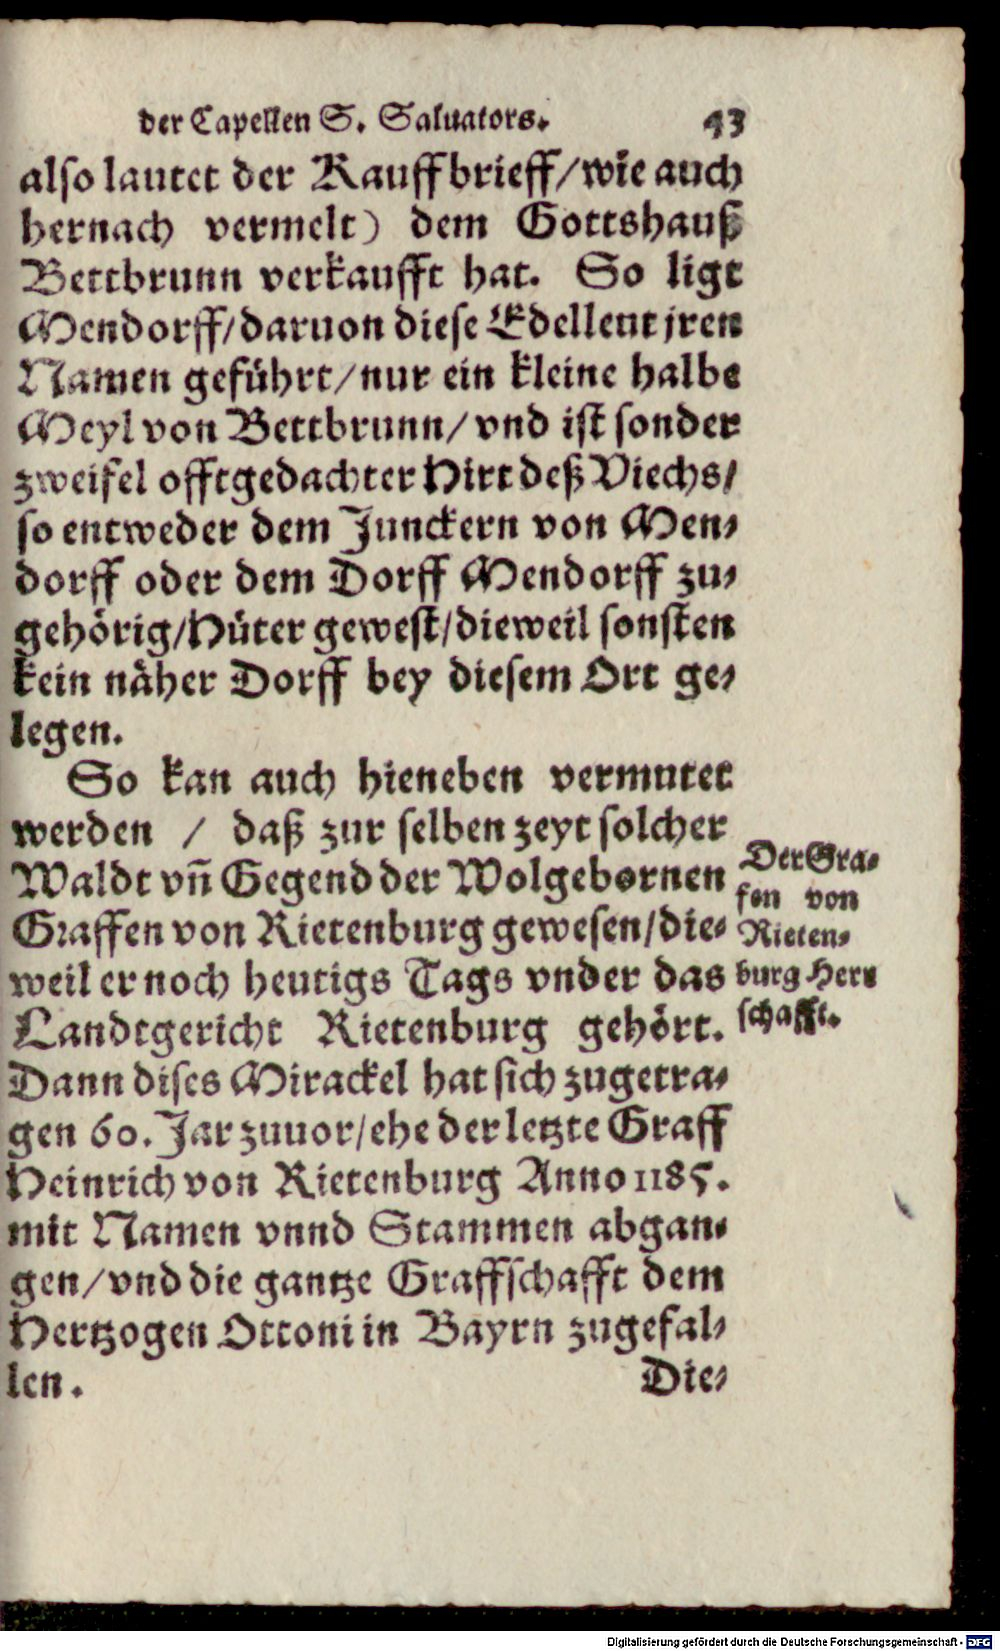 der Capellen S. Saluators. 43
also lautet der Kauffbrieff/wie auch
hernach vermelt) dem Gottshauß
Bettbrunn verkaufft hat. So ligt
Mendorff/daruon diese Edelleut jren
Namen geführt/nur ein kleine halbe
Meyl von Bettbrunn/ vnd ist sonder
zweifel offtgedachter Hirt deß Viechs/
so entweder dem Junckern von Men-
dorff oder dem Dorff Mendorff zu-
gehörig/Hüter gewest/dieweil sonsten
kein näher Dorff bey diesem Ort ge-
legen.
So kan auch hieneben vermutet
werden / daß zur selben zeyt solcher
Waldt vñ Gegend der Wolgebornen
Graffen von Rietenburg gewesen/die-
weil er noch heutigs Tags vnder das
Landtgericht Rietenburg gehört.
Dann dises Mirackel hat sich zugetra-
gen 60. Jar zuuor/ehe der letzte Graff
Heinrich von Rietenburg Anno 1185.
mit Namen vnnd Stammen abgan-
gen/vnd die gantze Graffschafft dem
Hertzogen Ottoni in Bayrn zugefal-
len.
Die-
Der Gra-
fen von
Rieten-
burg Herr
schafft.
Digitalisierung gefördert durch die Deutsche Forschungsgemeinschaft - DFG